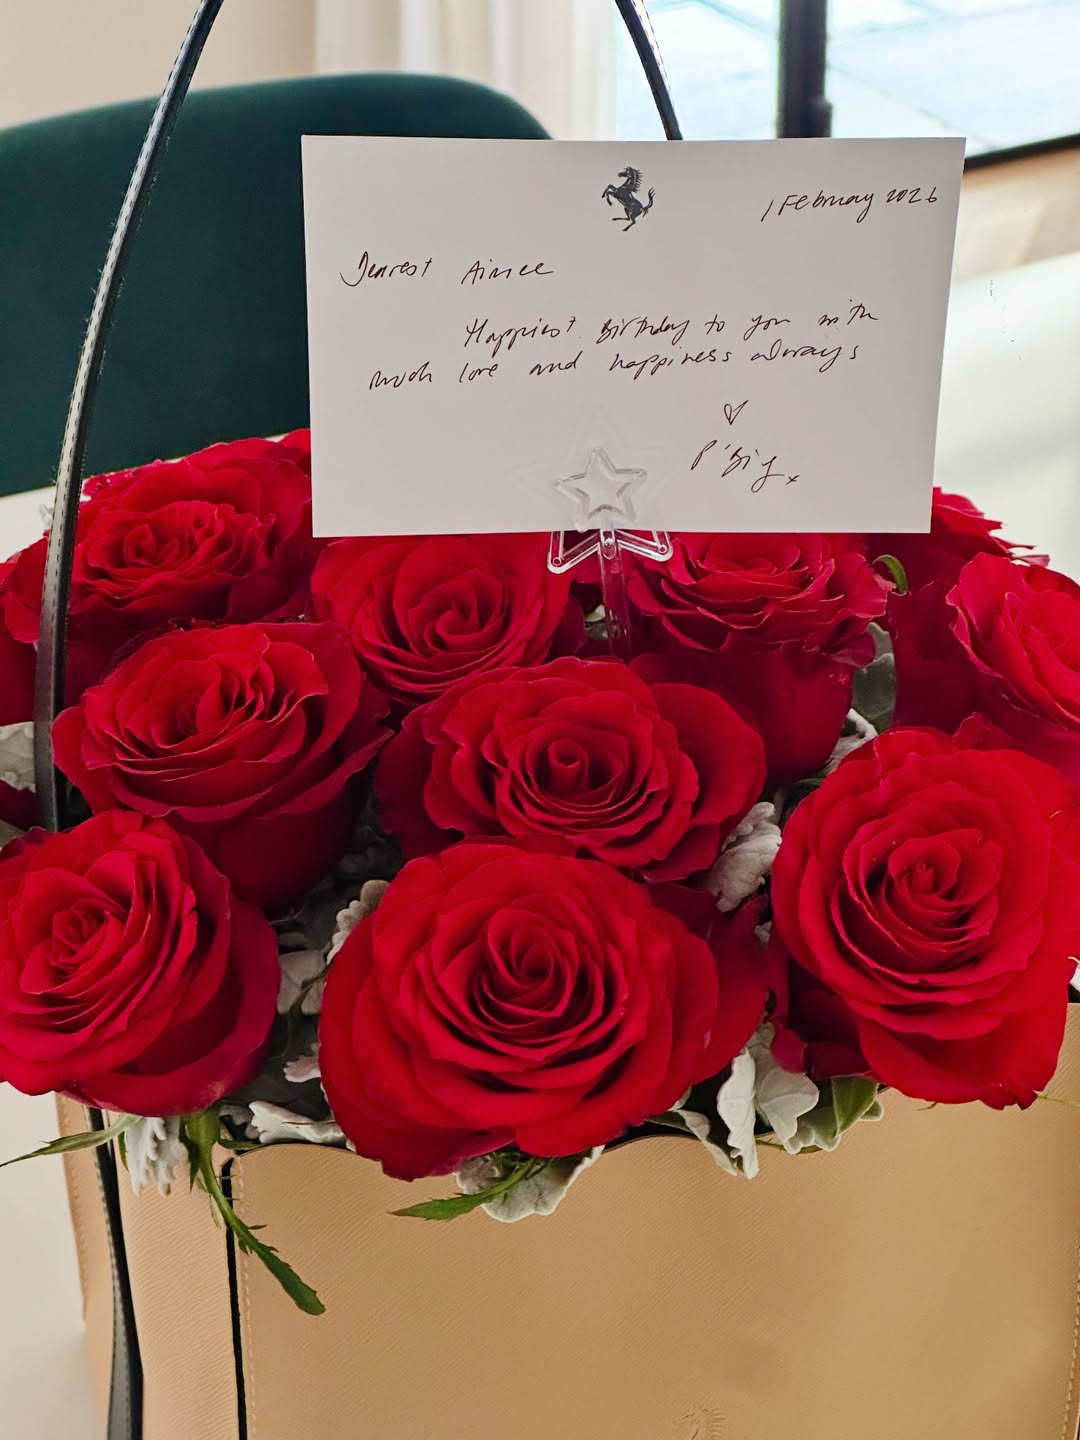 1 February 2026
Dearest Aimee
Happiest Birthday to you with
much love and happiness always
P'Big x